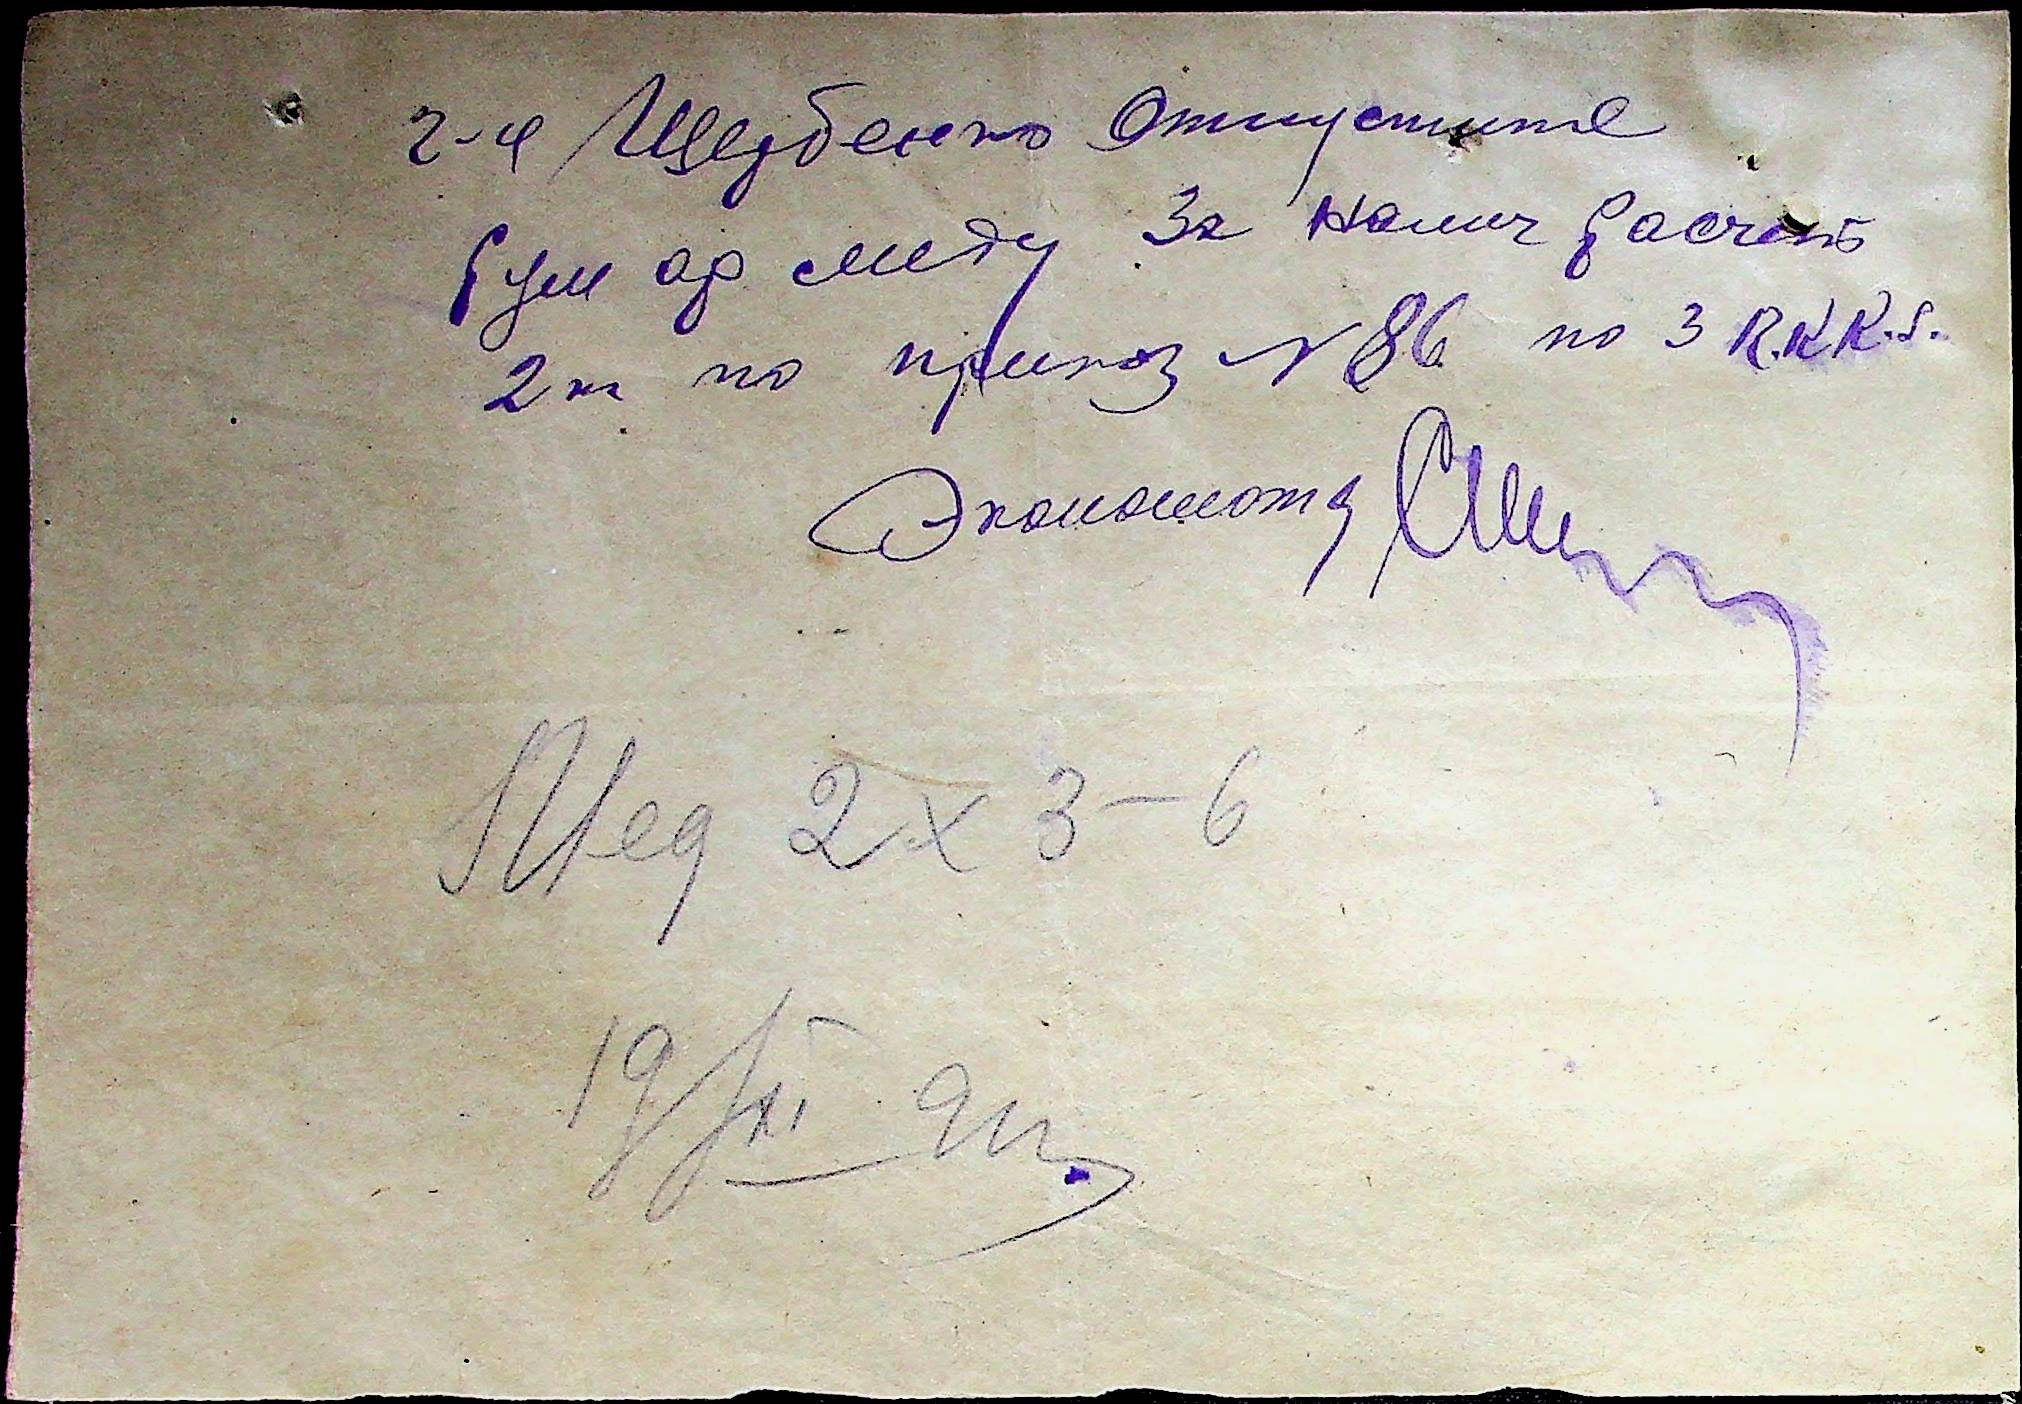 г-н Щербенко Отпустите
Рум ар меду за налич расчет
2 кг по приказ N 86 по 3 R.K.K.S.
Экономотд
Мед 2 х 3 – 6
19/XI